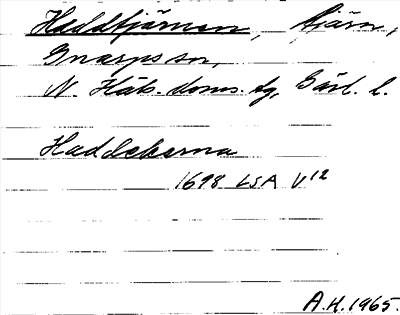 Haddtjärnen, tjärn,
Gnarps sn,
N. Häls. doms. tg, Gävl. l.
Haddekerna
1698 LSA V12
A.H. 1965.